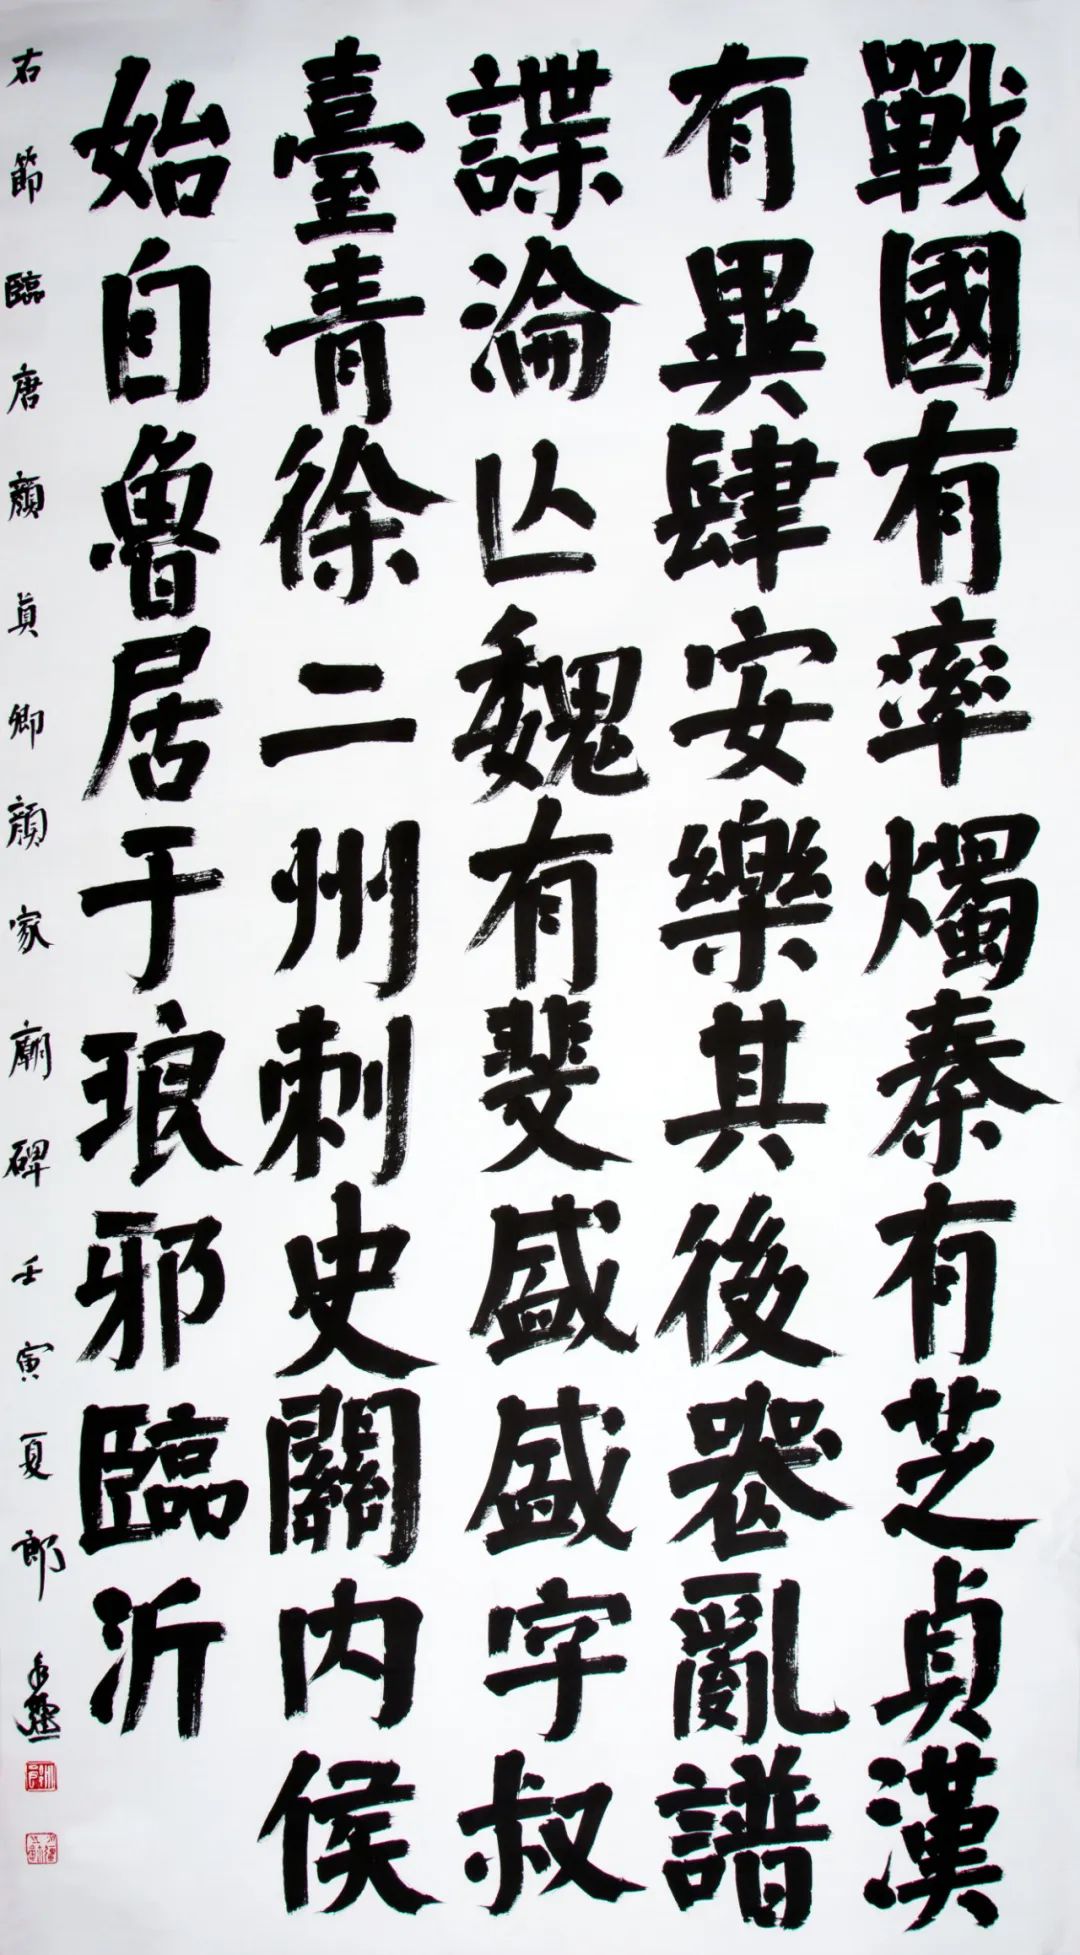 戰國有率燭秦有芝貞漢
有異肆安樂其後喪亂譜
諜淪亾魏有斐盛盛字叔
臺青徐二州刺史關内侯
始自魯居于琅邪臨沂
右節臨唐顔真卿顔家廟碑壬寅夏郎